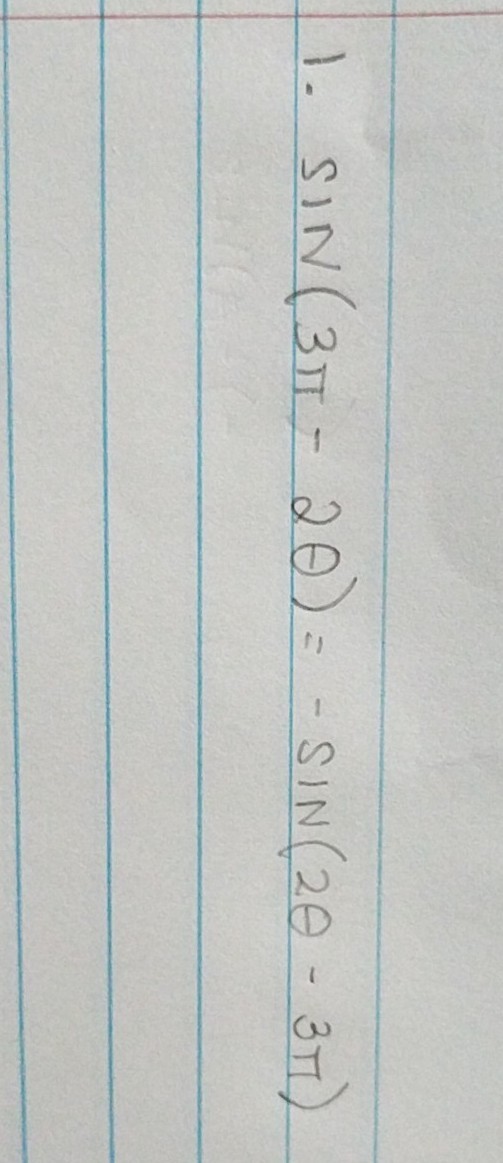 1. SIN(3π - 2θ) = -SIN(2θ - 3π)